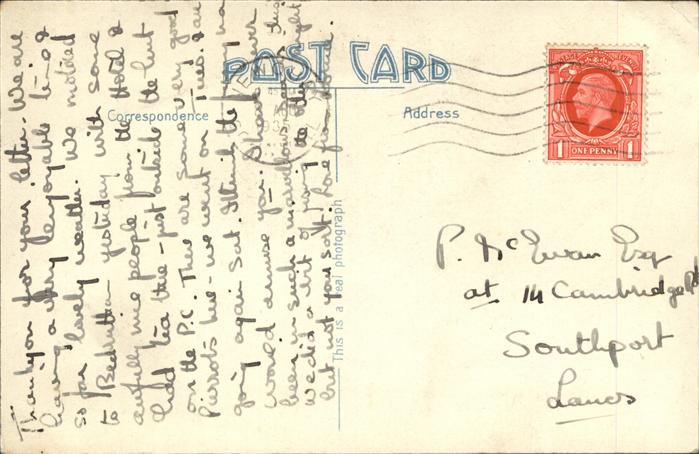 POST CARD
Correspondence
Address
This is a real photograph
ONE PENNY
1 1
Thankyou for your letter. We are
having a very enjoyable time &
so far lovely weather. We motored
to Bedruthan yesterday with some
awfully nice people from the Hotel &
had tea there - just outside the hut
on the P.C. There are some very good
Pierrots here - we went on Tues. & are
going again Sat. I think the
would amuse you. Shane
been in such a marvellous
we did a bit of the other night
but not your sort. Love from
P. McEwan Esq
at 14 Cambridge Rd
Southport
Lancs